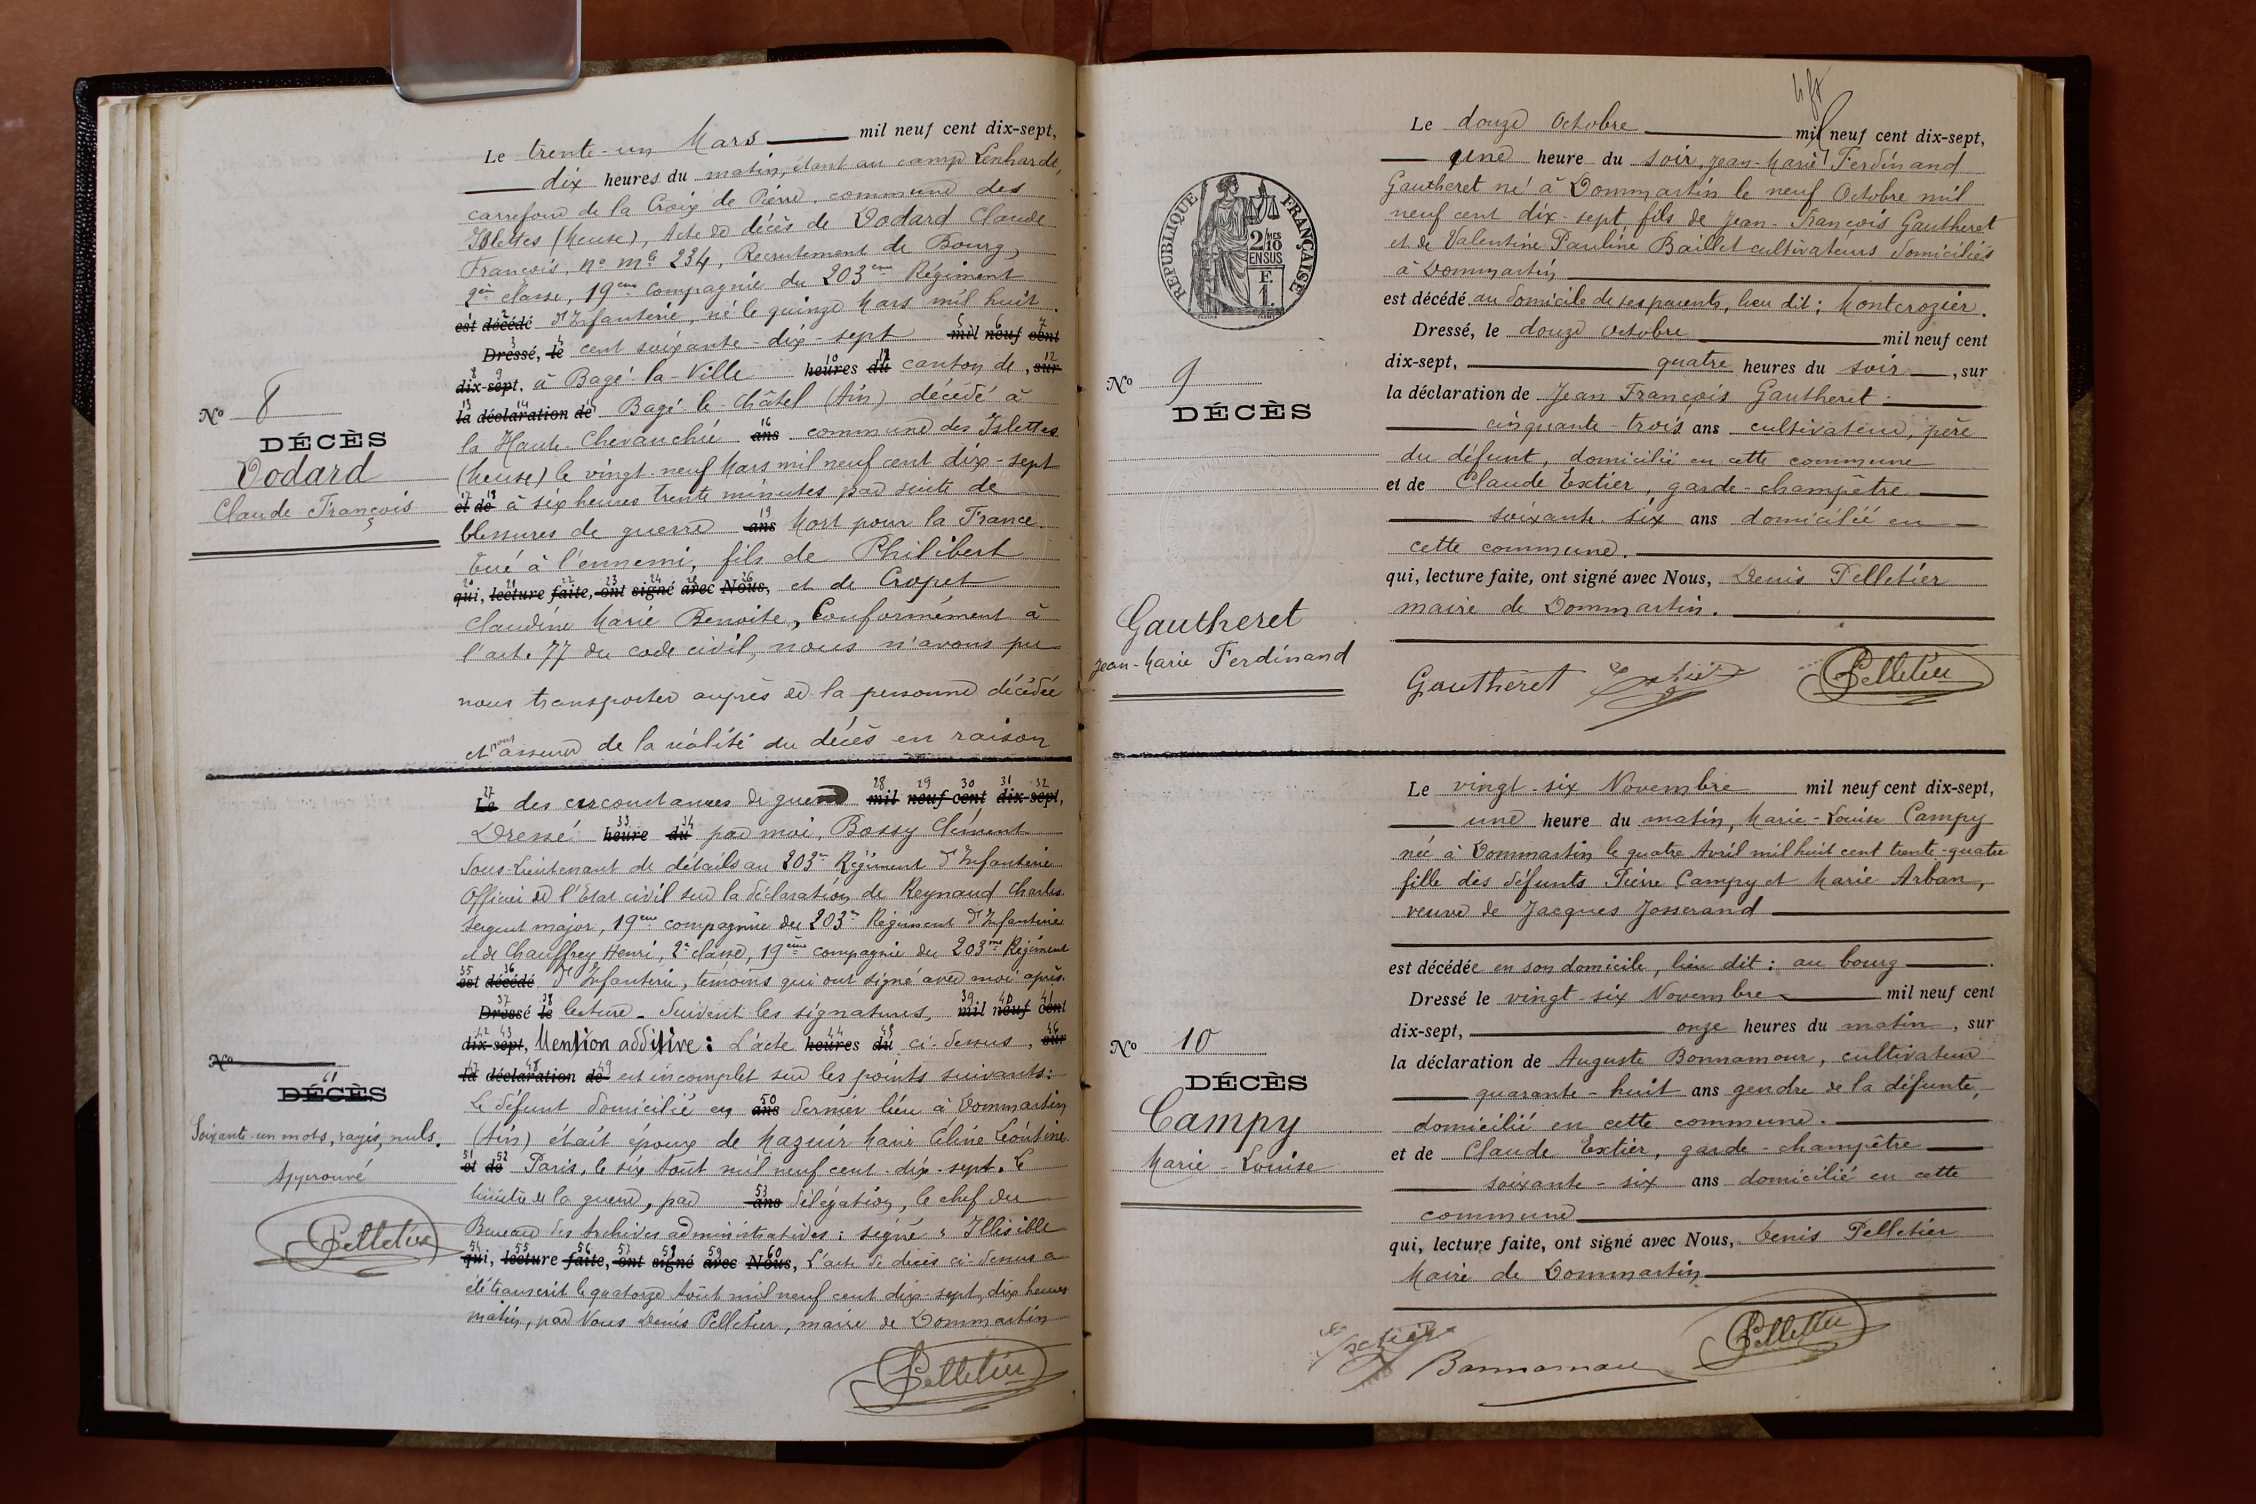 Le trente-un Mars mil neuf cent dix-sept,
dix heures du matin, étant au camp Lenharde,
carrefour de la Croix de Pierre, commune des
Islettes (Meuse), Acte de décès de Vodard Claude
François, n° mle 234, Recrutement de Bourg,
2e classe, 19eme Compagnie du 203eme Régiment
est décédé d'Infanterie, né le quinze Mars mil huit
Dressé, le cent soixante-dix-sept mil neuf cent
dix-sept, à Bagé-la-Ville heures du canton de, sur
la déclaration de Bagé-le-Châtel (Ain) décédé à
la Haute-Chevauchée ans commune des Islettes
(Meuse) le vingt-neuf Mars mil neuf cent dix-sept
et de à six heures trente minutes par suite de
blessures de guerre ans Mort pour la France.
Tué à l'ennemi, fils de Philibert
qui, lecture faite, ont signé avec Nous, et de Cropet
Claudine Marie Benoite, Conformément à
l'art. 77 du code civil, nous n'avons pu
nous transporter auprès de la personne décédée
et nous assurer de la réalité du décès en raison
N° 8
DÉCÈS
Vodard
Claude François
Le des circonstances de guerre mil neuf cent dix-sept,
Dressé heure du par moi, Bossy Clément
Sous-Lieutenant de détails au 203e Régiment d'Infanterie
Officier de l'Etat civil sur la déclaration de Reynaud Charles
Sergent major, 19eme compagnie du 203e Régiment d'Infanterie
et de Chauffrey Henri, 2e classe, 19eme compagnie du 203me Régiment
est décédé d'Infanterie, témoins qui ont signé avec moi après
Dressé le lecture. Suivent les signatures, mil neuf cent
dix-sept, Mention additive: L'acte heures du ci-dessus, sur
la déclaration de est incomplet sur les points suivants:
Le défunt domicilié en ans dernier lieu à Dommartin
(Ain) était époux de Mazuir Marie Céline Léontine
et de Paris, le six Août mil neuf cent-dix-sept. Le
Ministre de la guerre, par ans délégation, le chef du
Bureau des Archives administratives: signé: Illisible
qui, lecture faite, ont signé avec Nous, L'acte de décès ci-dessus a
été transcrit le quatorze Août mil neuf cent dix-sept, dix heures
matin, par Nous Denis Pelletier, maire de Dommartin
Pelletier
N°
61
DÉCÈS
Soixante-un mots, rayés, nuls.
Approuvé
Pelletier
Le douze Octobre mil neuf cent dix-sept,
une heure du soir, Jean-Marie Ferdinand
Gautheret né à Dommartin le neuf Octobre mil
neuf cent dix-sept fils de Jean-François Gautheret
et de Valentine Pauline Baillet cultivateurs domiciliés
à Dommartin
est décédé au domicile de ses parents, lieu dit: Montcrozier.
Dressé, le douze Octobre mil neuf cent
dix-sept, quatre heures du soir, sur
la déclaration de Jean François Gautheret
cinquante-trois ans cultivateur, père
du défunt, domicilié en cette commune
et de Claude Extier, garde-champêtre
soixante-six ans domicilié en
cette commune.
qui, lecture faite, ont signé avec Nous, Denis Pelletier
maire de Dommartin.
Gautheret Extier Pelletier
RÉPUBLIQUE FRANÇAISE
2/10 MES EN SUS
F. 1.
N° 9
DÉCÈS
Gautheret
Jean-Marie Ferdinand
Le vingt-six Novembre mil neuf cent dix-sept,
une heure du matin, Marie-Louise Campy
née à Dommartin le quatre Avril mil huit cent trente-quatre
fille des défunts Pierre Campy et Marie Arban,
veuve de Jacques Josserand
est décédée en son domicile, lieu dit: au bourg.
Dressé le vingt-six Novembre mil neuf cent
dix-sept, onze heures du matin, sur
la déclaration de Auguste Bonnamour, cultivateur
quarante-huit ans gendre de la défunte,
domicilié en cette commune.
et de Claude Extier, garde-champêtre
soixante-six ans domicilié en cette
commune
qui, lecture faite, ont signé avec Nous, Denis Pelletier
Maire de Dommartin
Extier Bonnamour Pelletier
N° 10
DÉCÈS
Campy
Marie-Louise